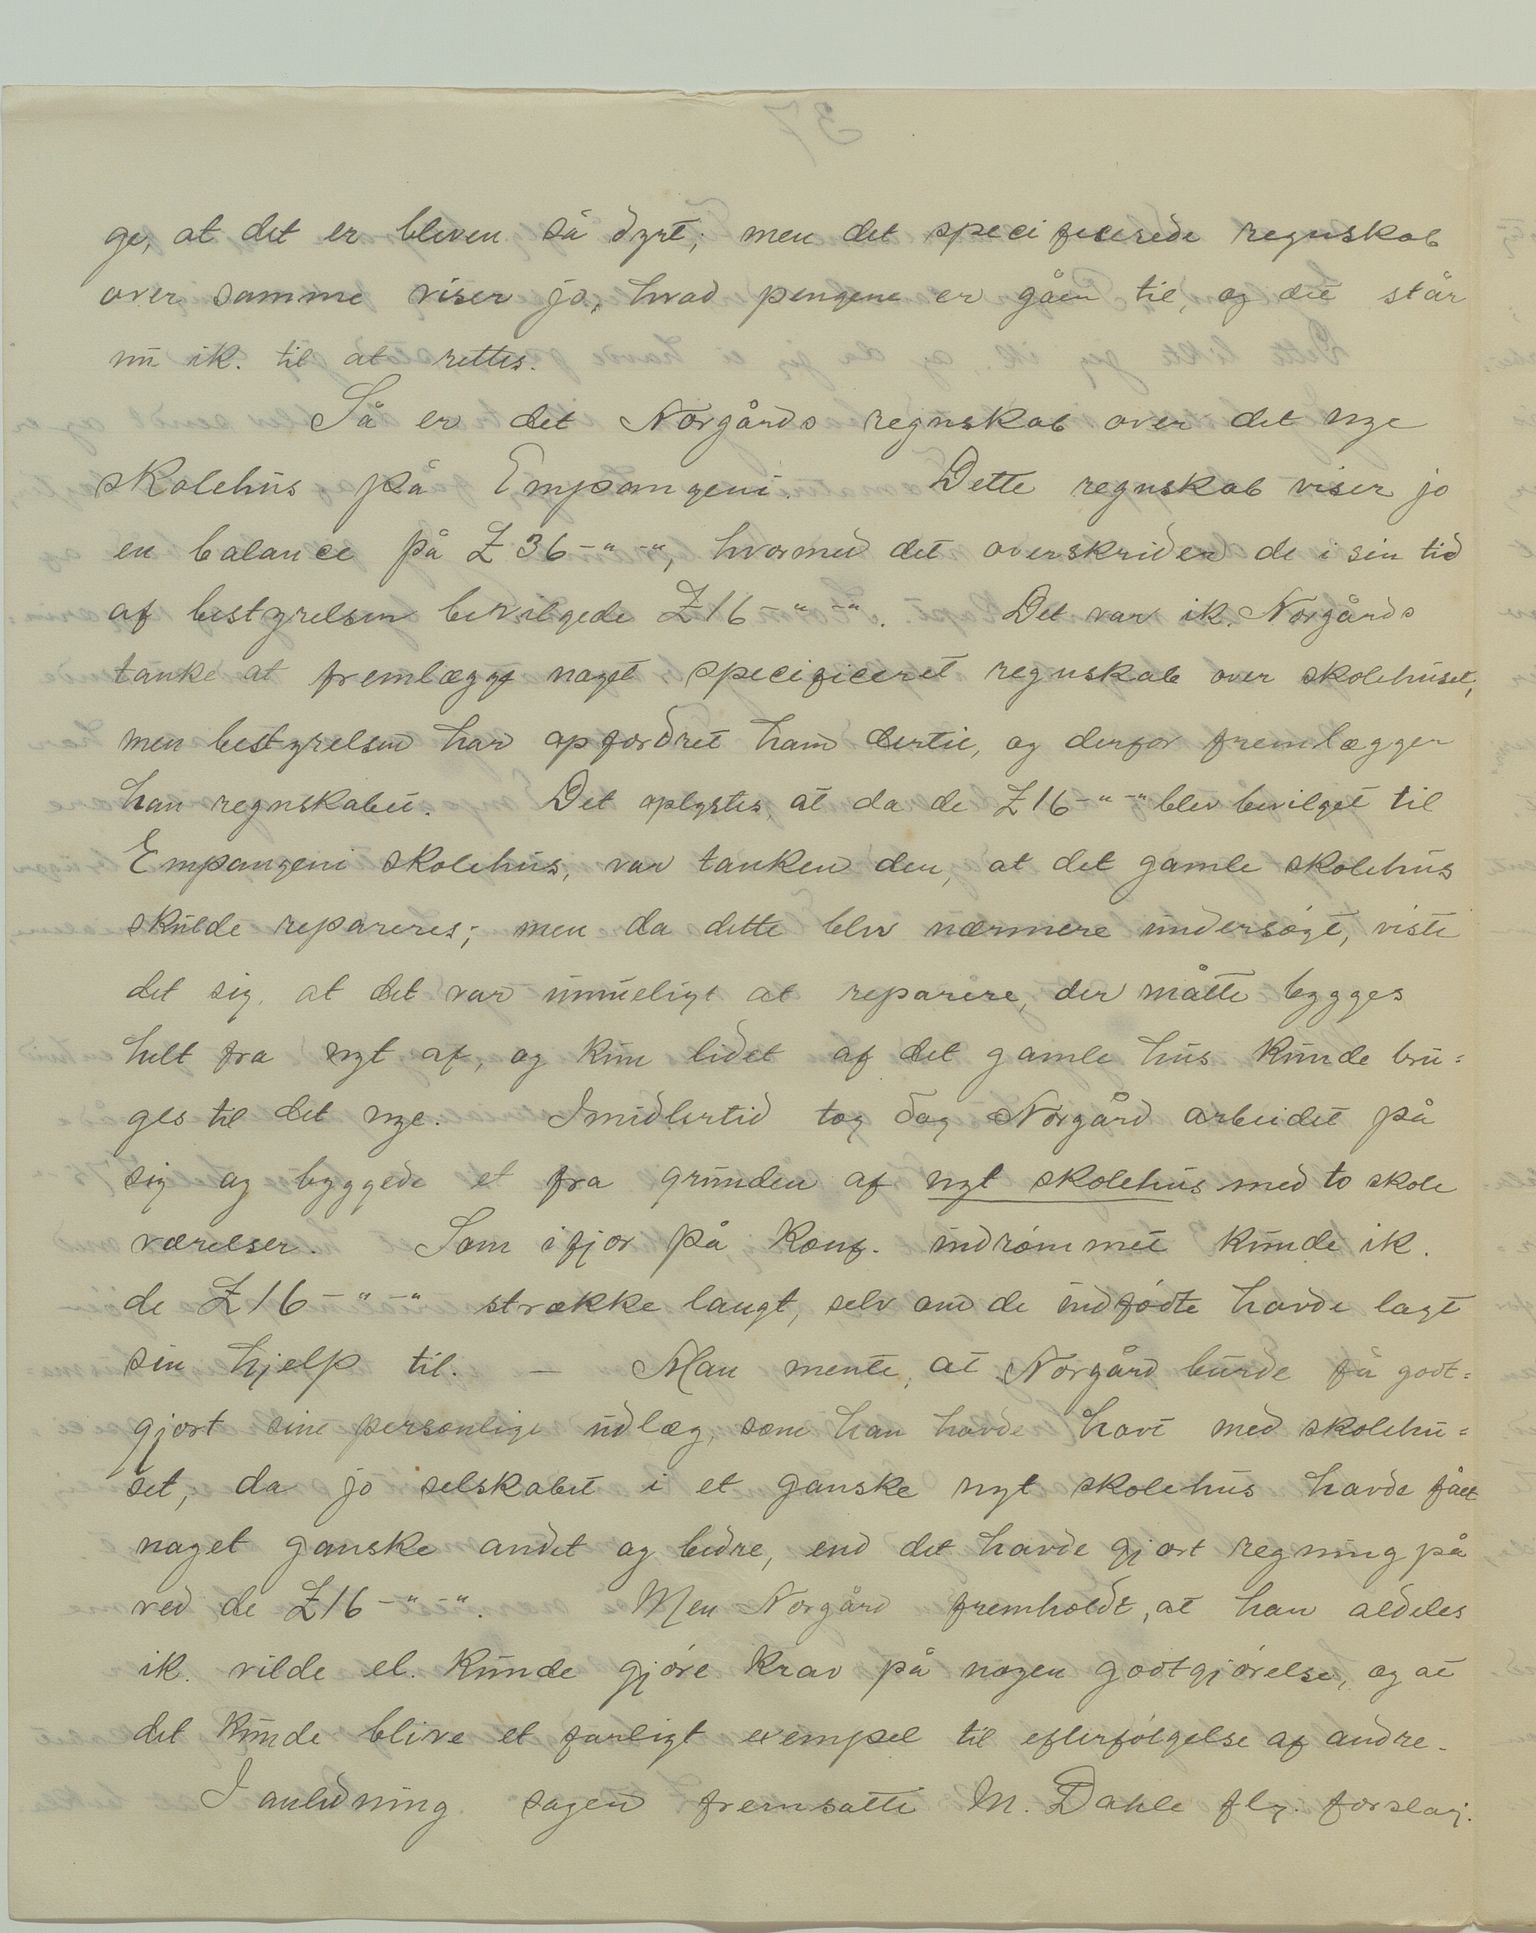 ge, at det er bleven så dyrt; men det specificerede regnskab
over samme viser jo, hvad pengene er gåen til, og det står
nu ik. til at rettes.
Så er det Norgårds regnskab over det nye
skolehus på Empangeni. Dette regnskab viser jo
en balance på £ 36-"-", hvormed det overskrider de i sin tid
af bestyrelsen bevilgede £16-"-". Det var ik. Norgårds
tanke at fremlægge noget specificeret regnskab over skolehuset,
men bestyrelsen har opfordret ham dertil, og derfor fremlægger
han regnskabet. Det oplystes, at da de £16-"-" blev bevilget til
Empangeni skolehus, var tanken den, at det gamle skolehus
skulde repareres; men da dette blev nærmere undersøgt, viste
det sig, at det var umueligt at reparere, der måtte bygges
helt fra nyt af, og kun lidet af det gamle hus kunde bru=
ges til det nye. Imidlertid tog dog Norgård arbeidet på
sig og byggede et fra grunden af nyt skolehus med to skole
værelser. Som ifjor på Konf. indrømmet kunde ik.
de £16-"-" strække langt, selv om de indfødte havde lagt
sin hjelp til. — Man mente, at Norgård burde få godt=
gjort sine personlige udlæg, som han havde havt med skolehu=
set, da jo selskabet i et ganske nyt skolehus havde fået
noget ganske andet og bedre, end det havde gjort regning på
ved de £16-"-". Men Norgård fremholdt, at han aldeles
ik. vilde el. kunde gjøre krav på nogen godtgjørelse, og at
det kunde blive et farligt exempel til efterfølgelse af andre.
I anledning sagen fremsatte M. Dahle flg. forslag.